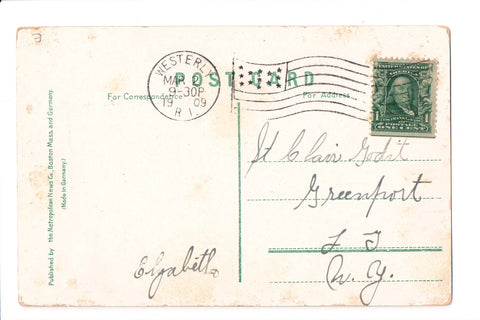 3
WESTERLY
MAR 2
9-30P
1909
R.I.
POST CARD
For Correspondence
For Address
UNITED STATES OF AMERICA
1 1
POSTAGE
ONE CENT
St Clair
Greenport
L I
N.Y.
Elyabeth
Published by the Metropolitan News Co., Boston Mass. and Germany.
(Made in Germany)